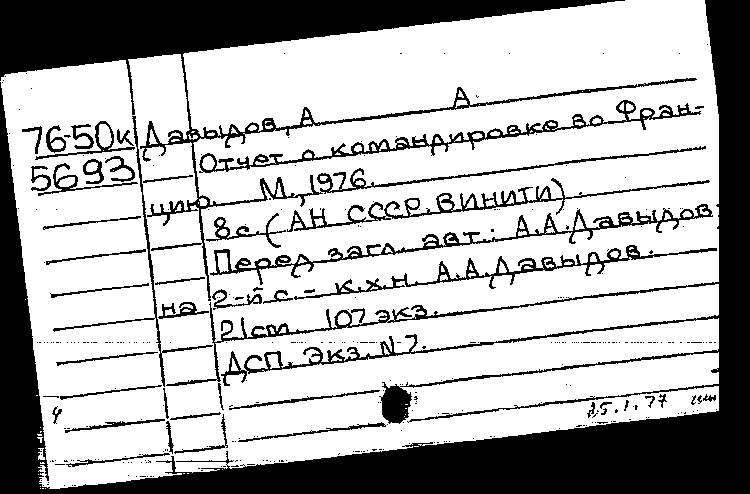 76-50к Давыдов, А А
5693 Отчет о командировке во Фран-
цию. М., 1976.
8 с. (АН СССР. ВИНИТИ).
Перед загл. авт.: А.А.Давыдов;
на 2-й с. - к.х.н. А.А.Давыдов.
21 cm. 107 экз.
ДСП. Экз. N 7.
15.1.77